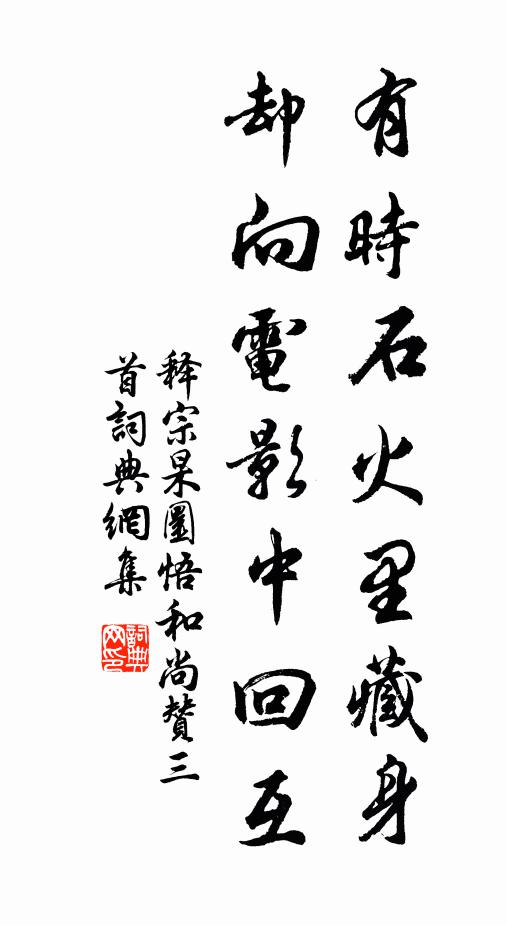 有時石火里藏身
却向電影中回互
释宗杲圜悟和尚贊三
首詞典網集
詞典網印